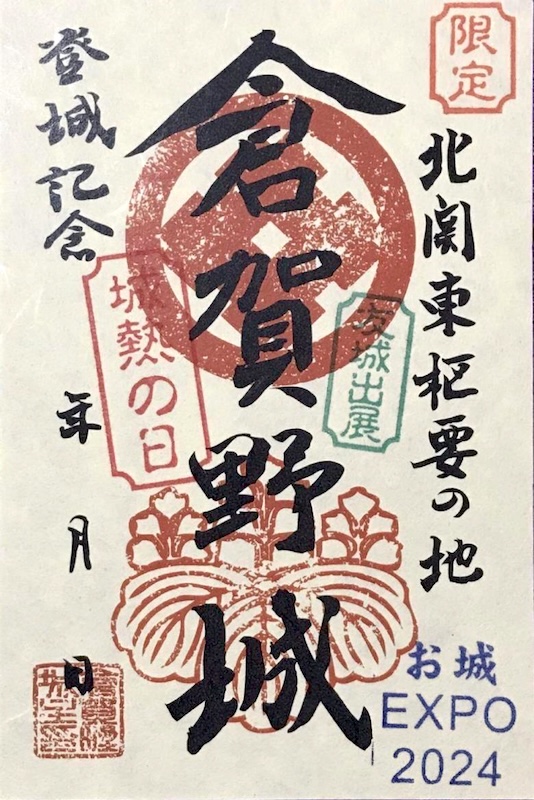 限定
北関東枢要の地
倉賀野城
城出展
城熱の日
登城記念
年 月 日
お城
EXPO
2024